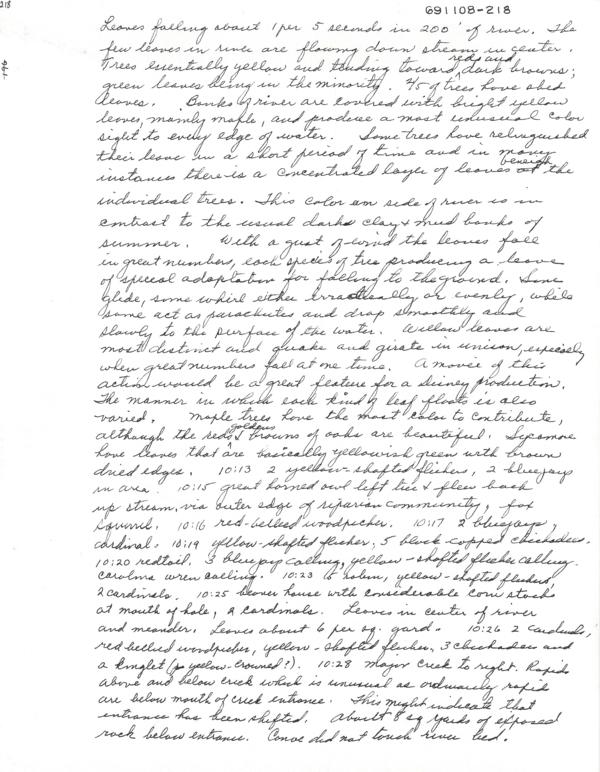 218
691108-218
-196
Leaves falling about 1 per 5 seconds in 200' of river. The
few leaves in river are flowing down stream in center.
Trees essentially yellow and tending toward reds and dark browns;
green leaves being in the minority. 2/5 of trees have shed
leaves. Banks of river are covered with bright yellow
leaves, mainly maple, and produce a most unusual color
sight to every edge of water. Some trees have relinquished
their leaves in a short period of time and in many
instances there is a concentrated layer of leaves beneath the
individual trees. This color on side of river is in
contrast to the usual dark clay & mud banks of
summer. With a gust of wind the leaves fall
in great numbers, each species of tree producing a leave
of special adaptation for falling to the ground. Some
glide, some whirl either erratically or evenly, while
some act as parachutes and drop smoothly and
slowly to the surface of the water. Willow leaves are
most distinct and quake and girate in unison, especially
when great numbers fall at one time. A movie of this
action would be a great feature for a Disney production.
The manner in which each kind of leaf floats is also
varied. Maple trees have the most color to contribute,
although the reds, goldens & browns of oaks are beautiful. Sycamore
have leaves that are basically yellowish green with brown
dried edges. 10:13 2 yellow-shafted flickers, 2 bluejays
in area. 10:15 great horned owl left tree & flew back
up stream, via outer edge of riparian community, fox
squirrel. 10:16 red-bellied woodpecker. 10:17 2 bluejays,
cardinal. 10:19 yellow-shafted flicker, 5 black-capped chickadees.
10:20 redtail. 3 bluejays calling, yellow-shafted flicker calling.
Carolina wren calling. 10:23 robin, yellow-shafted flickers,
2 cardinals. 10:25 beaver house with considerable corn stalks
at mouth of hole, 2 cardinals. Leaves in center of river
and meander. Leaves about 6 per sq. yard. 10:26 2 cardinals,
red bellied woodpecker, yellow-shafted flicker, 3 chickadees and
a kinglet yellow-crowned?). 10:28 major creek to right. Rapids
above and below creek which is unusual as ordinarily rapids
are below mouth of creek entrance. This might indicate that
entrance has been shifted. About 8 sq yards of exposed
rock below entrance. Canoe did not touch river bed.